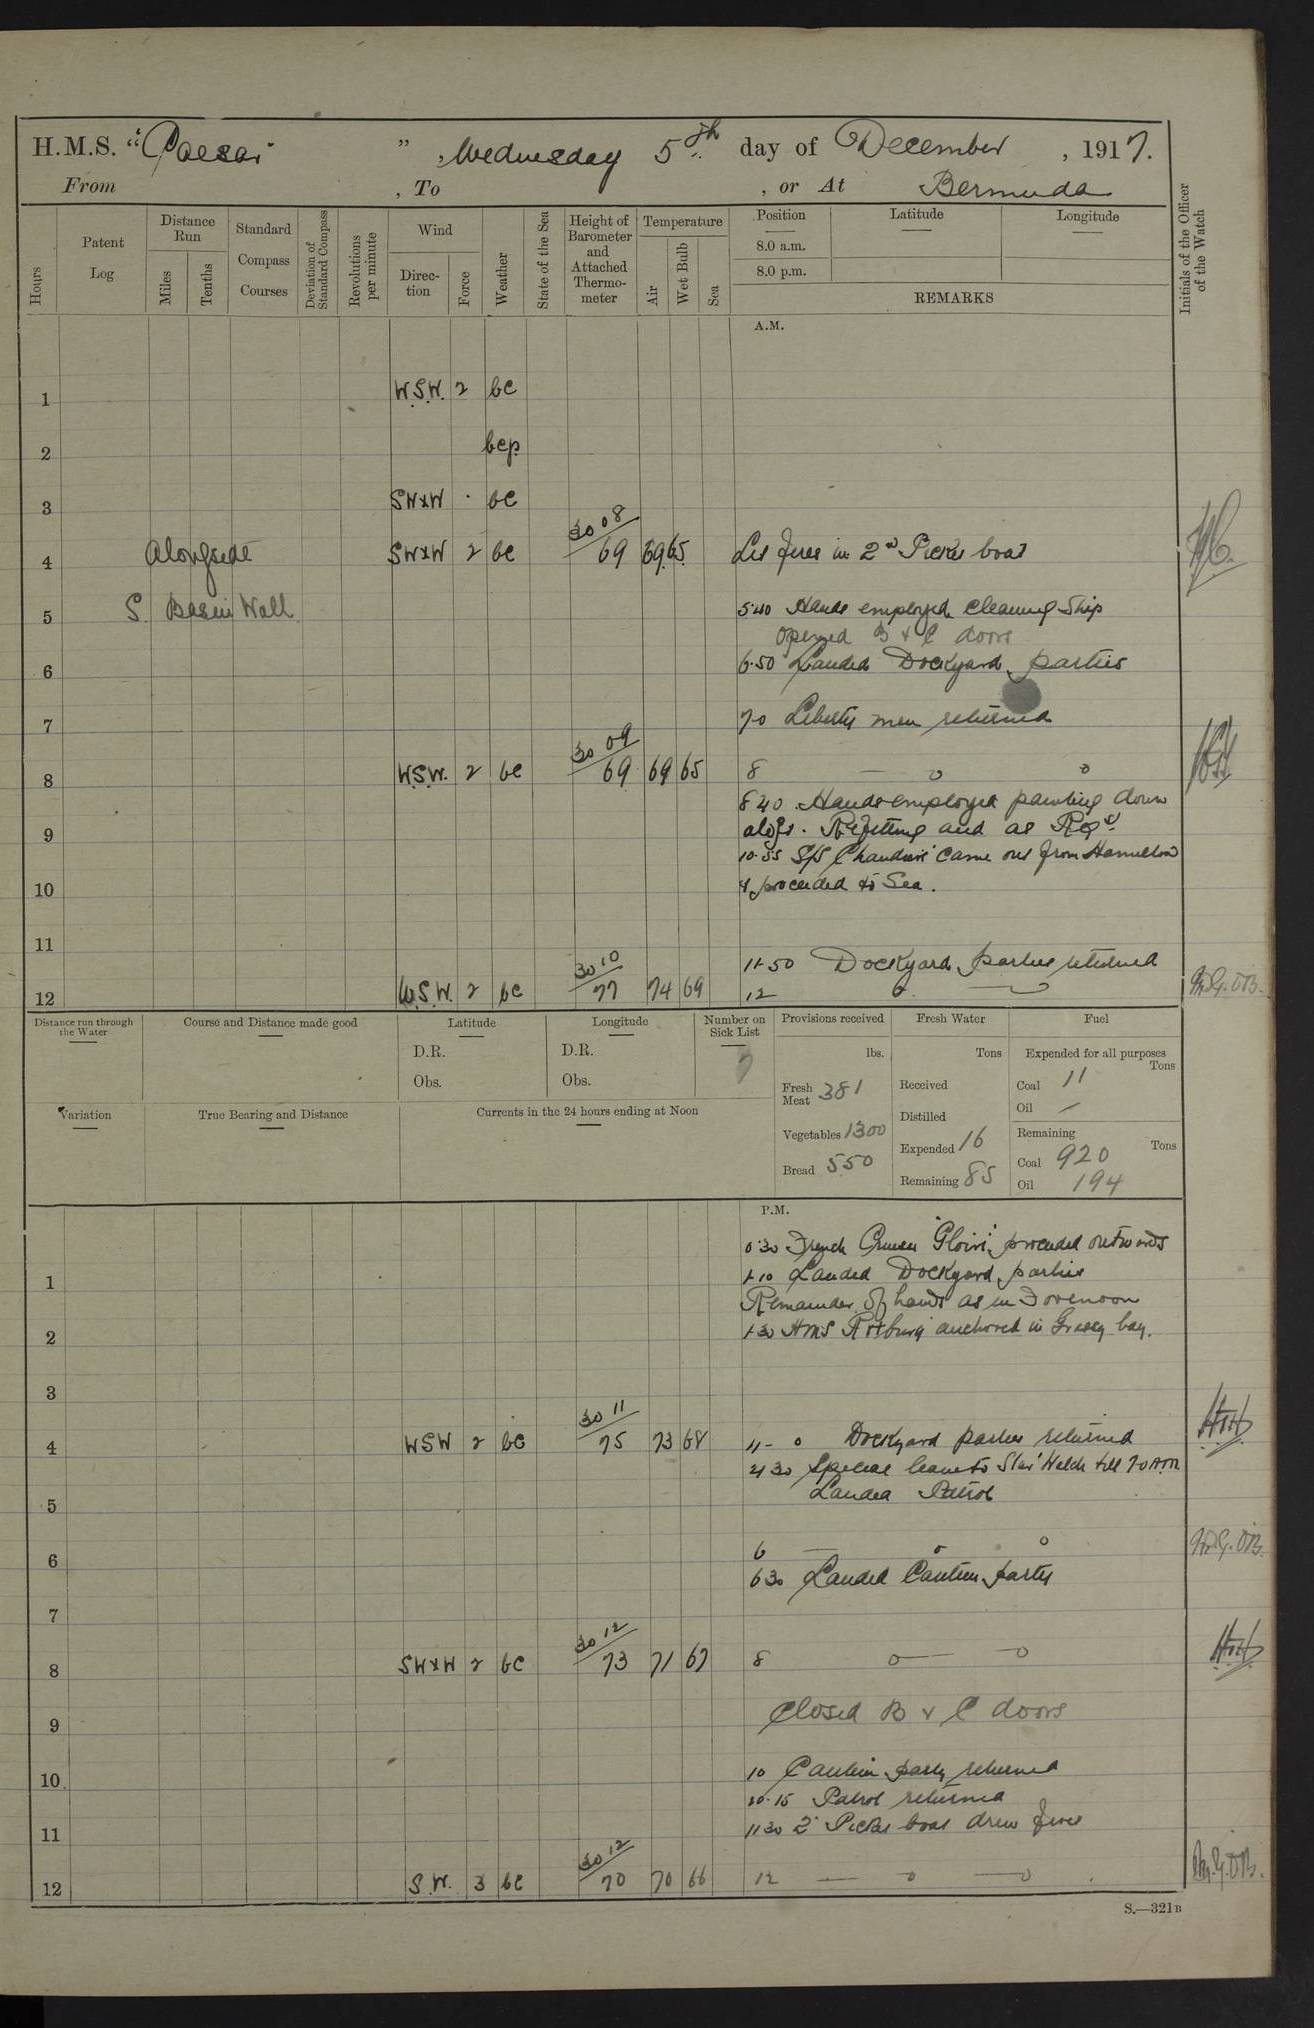 H.M.S. "Caesar" , Wednesday 5th day of December , 1917.
From , To , or At Bermuda
Hours
Patent Log
Distance Run
Miles
Tenths
Standard Compass Courses
Deviation of Standard Compass
Revolutions per minute
Wind
Direction
Force
Weather
State of the Sea
Height of Barometer and Attached Thermometer
Temperature
Air
Wet Bulb
Sea
Position
Latitude
Longitude
8.0 a.m.
8.0 p.m.
REMARKS
Initials of the Officer of the Watch
A.M.
1 W.S.W. 2 bc
2 bcp.
3 SWxW · bc
4 Alongside SWxW 2 bc 30 08/69 69 65 Lit fires in 2nd Picket boat
5 S. Basin Wall 5.40 Hands employed cleaning Ship
Opened B & C doors
6 6.50 Landed Dockyard parties
7 7.0 Liberty men returned
8 W.S.W. 2 bc 30 09/69 69 65 8 — o o
8 40 Hands employed painting down
9 aloft. Refitting and as Reqd.
10.55 S/S Chaudiere came out from Hamilton
10 & proceeded to Sea.
11 11.50 Dockyard parties returned
12 W.S.W. 2 bc 30 10/77 74 69 12 o —o
Distance run through the Water
Course and Distance made good
Latitude
D.R.
Obs.
Longitude
D.R.
Obs.
Number on Sick List
7
Provisions received
lbs.
Fresh Meat 381
Vegetables 1300
Bread 550
Fresh Water
Tons
Received
Distilled
Expended 16
Remaining 85
Fuel
Expended for all purposes
Tons
Coal 11
Oil —
Remaining
Tons
Coal 920
Oil 194
Variation
True Bearing and Distance
Currents in the 24 hours ending at Noon
P.M.
0.30 French Cruiser 'Gloire' proceeded outwards
1 1.10 Landed Dockyard parties
Remainder of hands as in Forenoon
2 1.30 HMS Roxburg anchored in Grassy bay.
3
4 WSW 2 bc 30 11/75 73 68 4-0 Dockyard parties returned
4 30 Special leave to Welch till 7.0 AM
5 Landed Patrol
6 6 — o o
6 30 Landed Canteen party
7
8 SWxW 2 bc 30 12/73 71 67 8 o— —o
9 Closed B & C doors
10 10 Canteen party returned
10.15 Patrol returned
11 11 30 2nd Picket boat drew fires
12 S.W. 3 bc 30 12/70 70 66 12 — o —o
S.—321B